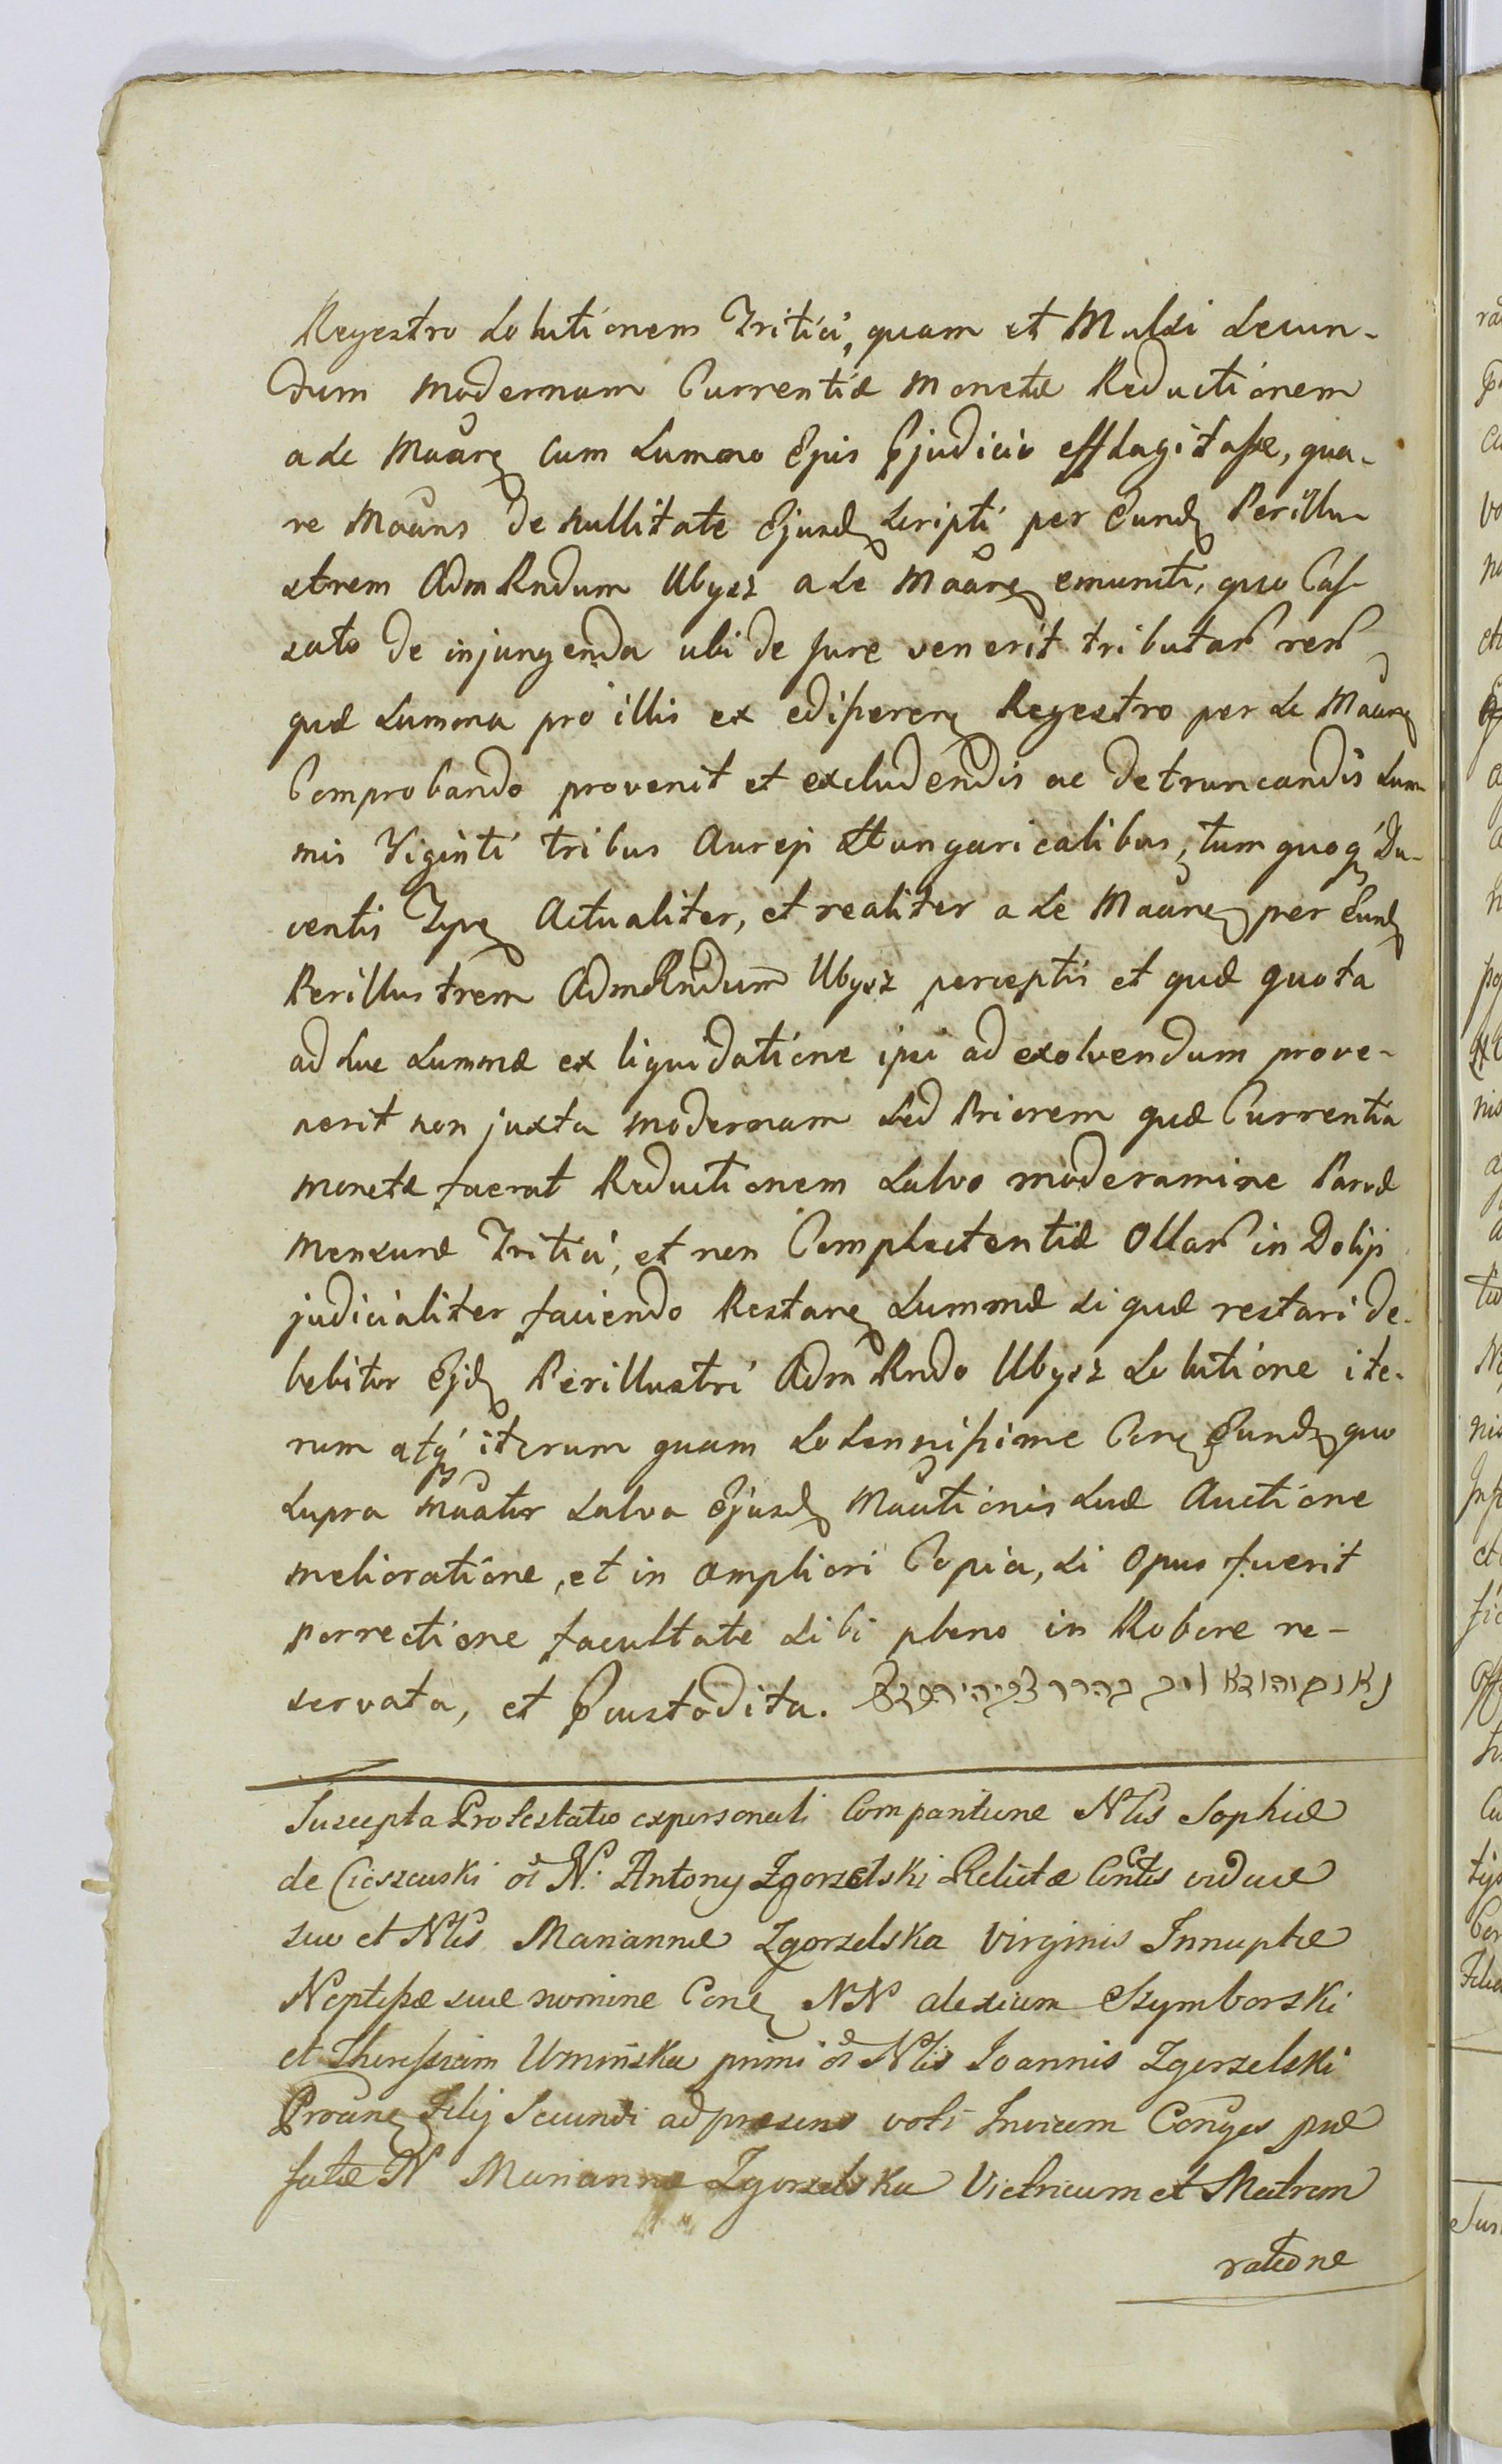 Regestro Solutionem Tritici, quam et Mulsi Secun-
dum modernam Currentiæ monetæ Reductionem
a se Maãre cum Summo Ejus Pjudicio efflagitasse, qua-
re Maãns de nullitate Ejusd Scripti per Eund Perillu-
strem Adm Rndum Ubysz a Se Maãre emuncti, quo Cas-
sato de injungenda ubi de jure venerit tributar rer
quæ Summa pro illis ex edisseren Regestro per Se Maãre
Comprobando provenit et excludendis ac detruncandis Sum-
mis Viginti tribus Aureis Hungaricalibus, tum quoq Du-
centis Tynf Actualiter, et realiter a Se Maãre per Eund
Perillustrem AdmRndum Ubysz perceptis et quæ quota
adhuc Summæ ex liquidatione ipsi ad exolvendum prove-
nerit non juxta modernam Sed Priorem quæ Currentia
monetæ fuerat Reductionem Salvo moderamine Parvæ
Mensuræ Tritici, et non Complectentiæ Ollar in Dolijs
judicialiter faciendo Restare Summæ Si quæ restari de-
bebitur Ejd Perillustri Adm Rndo Ubysz Solutione ite-
rum atq iterum quam Solennissime Con Eund quo
Supra maãtur Salva Ejusd Maãtionis Suæ Auctione
melioratione, et in ampliori Copia, Si Opus fuerit
porrectione facultate Sibi pleno in Robore re-
servata, et Pcustodita.
Suscepta Protestatio expersonali Comparitione Nlis Sophiæ
de Cieszewski oi N. Antony Zgorzelski Relictæ Contis viduæ
suo et Nlis Mariannæ Zgorzelska Virginis Innuptæ
Neptissæ suæ nomine Con NN alexium Szymborski
et Theressiam Uzninska primi oi Nlis Joannis Zgorzelski
Proãne Filij Secundi ad præsens voti Invicem Conges præ
fatæ N Mariannæ Zgorzelska Vietricum et Matrem
ratione